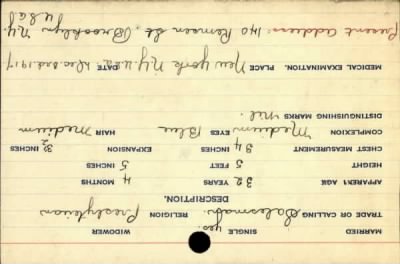 MARRIED SINGLE yes. WIDOWER
TRADE OR CALLING Salesman. RELIGION Presbyterian
DESCRIPTION.
APPARENT AGE 32 YEARS 4 MONTHS
HEIGHT 5 FEET 5 INCHES
CHEST MEASUREMENT 34 INCHES EXPANSION 3½ INCHES
COMPLEXION Medium EYES Blue HAIR Medium
DISTINGUISHING MARKS Nil.
MEDICAL EXAMINATION. PLACE New York N.Y. U.S.A. DATE Dec 3rd. 1917
Present address: 140 Remsen St, Brooklyn N.Y.
U.S.A.